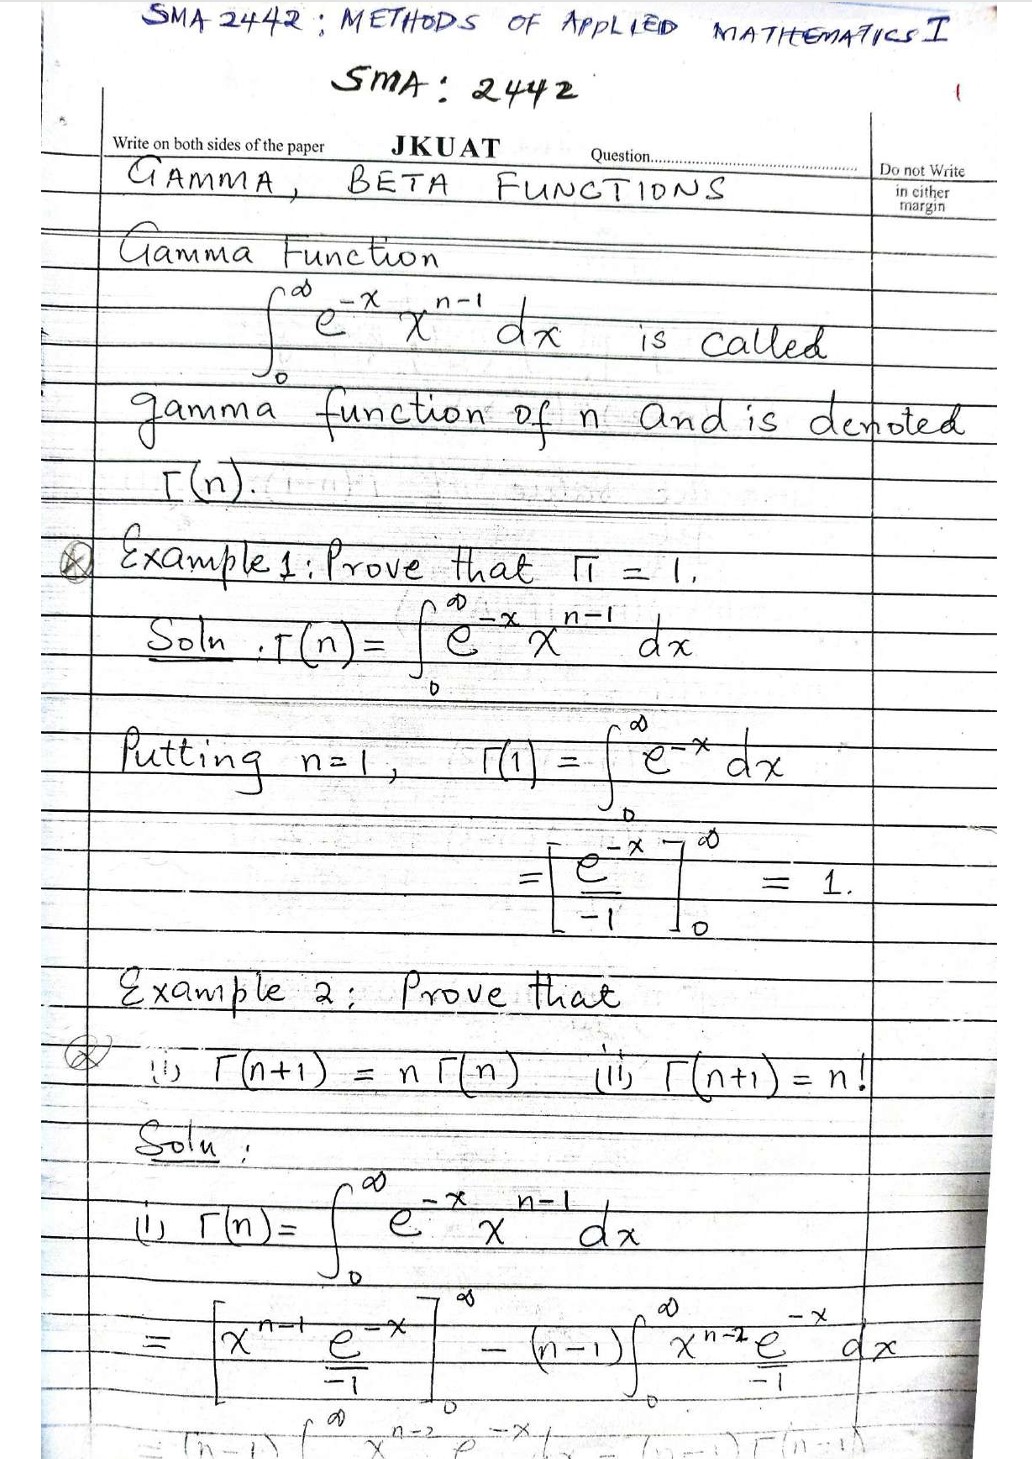 SMA 2442 : METHODS OF APPLIED MATHEMATICS I
SMA : 2442
1
Write on both sides of the paper JKUAT Question.......... Do not Write
in either
margin
GAMMA, BETA FUNCTIONS
Gamma Function
∫₀^∞ e^{-x} x^{n-1} dx is called
gamma function of n and is denoted
Γ(n).
Example 1: Prove that Γ1 = 1.
Soln . Γ(n) = ∫₀^∞ e^{-x} x^{n-1} dx
Putting n=1, Γ(1) = ∫₀^∞ e^{-x} dx
= [e^{-x}/-1]₀^∞ = 1.
Example 2: Prove that
(i) Γ(n+1) = n Γ(n) (ii) Γ(n+1) = n!
Soln :
(i) Γ(n) = ∫₀^∞ e^{-x} x^{n-1} dx
= [x^{n-1} e^{-x}/-1]₀^∞ - (n-1) ∫₀^∞ x^{n-2} e^{-x}/-1 dx
= (n-1) ∫^∞ x^{n-2} e^{-x} dx = (n-1) Γ(n-1)